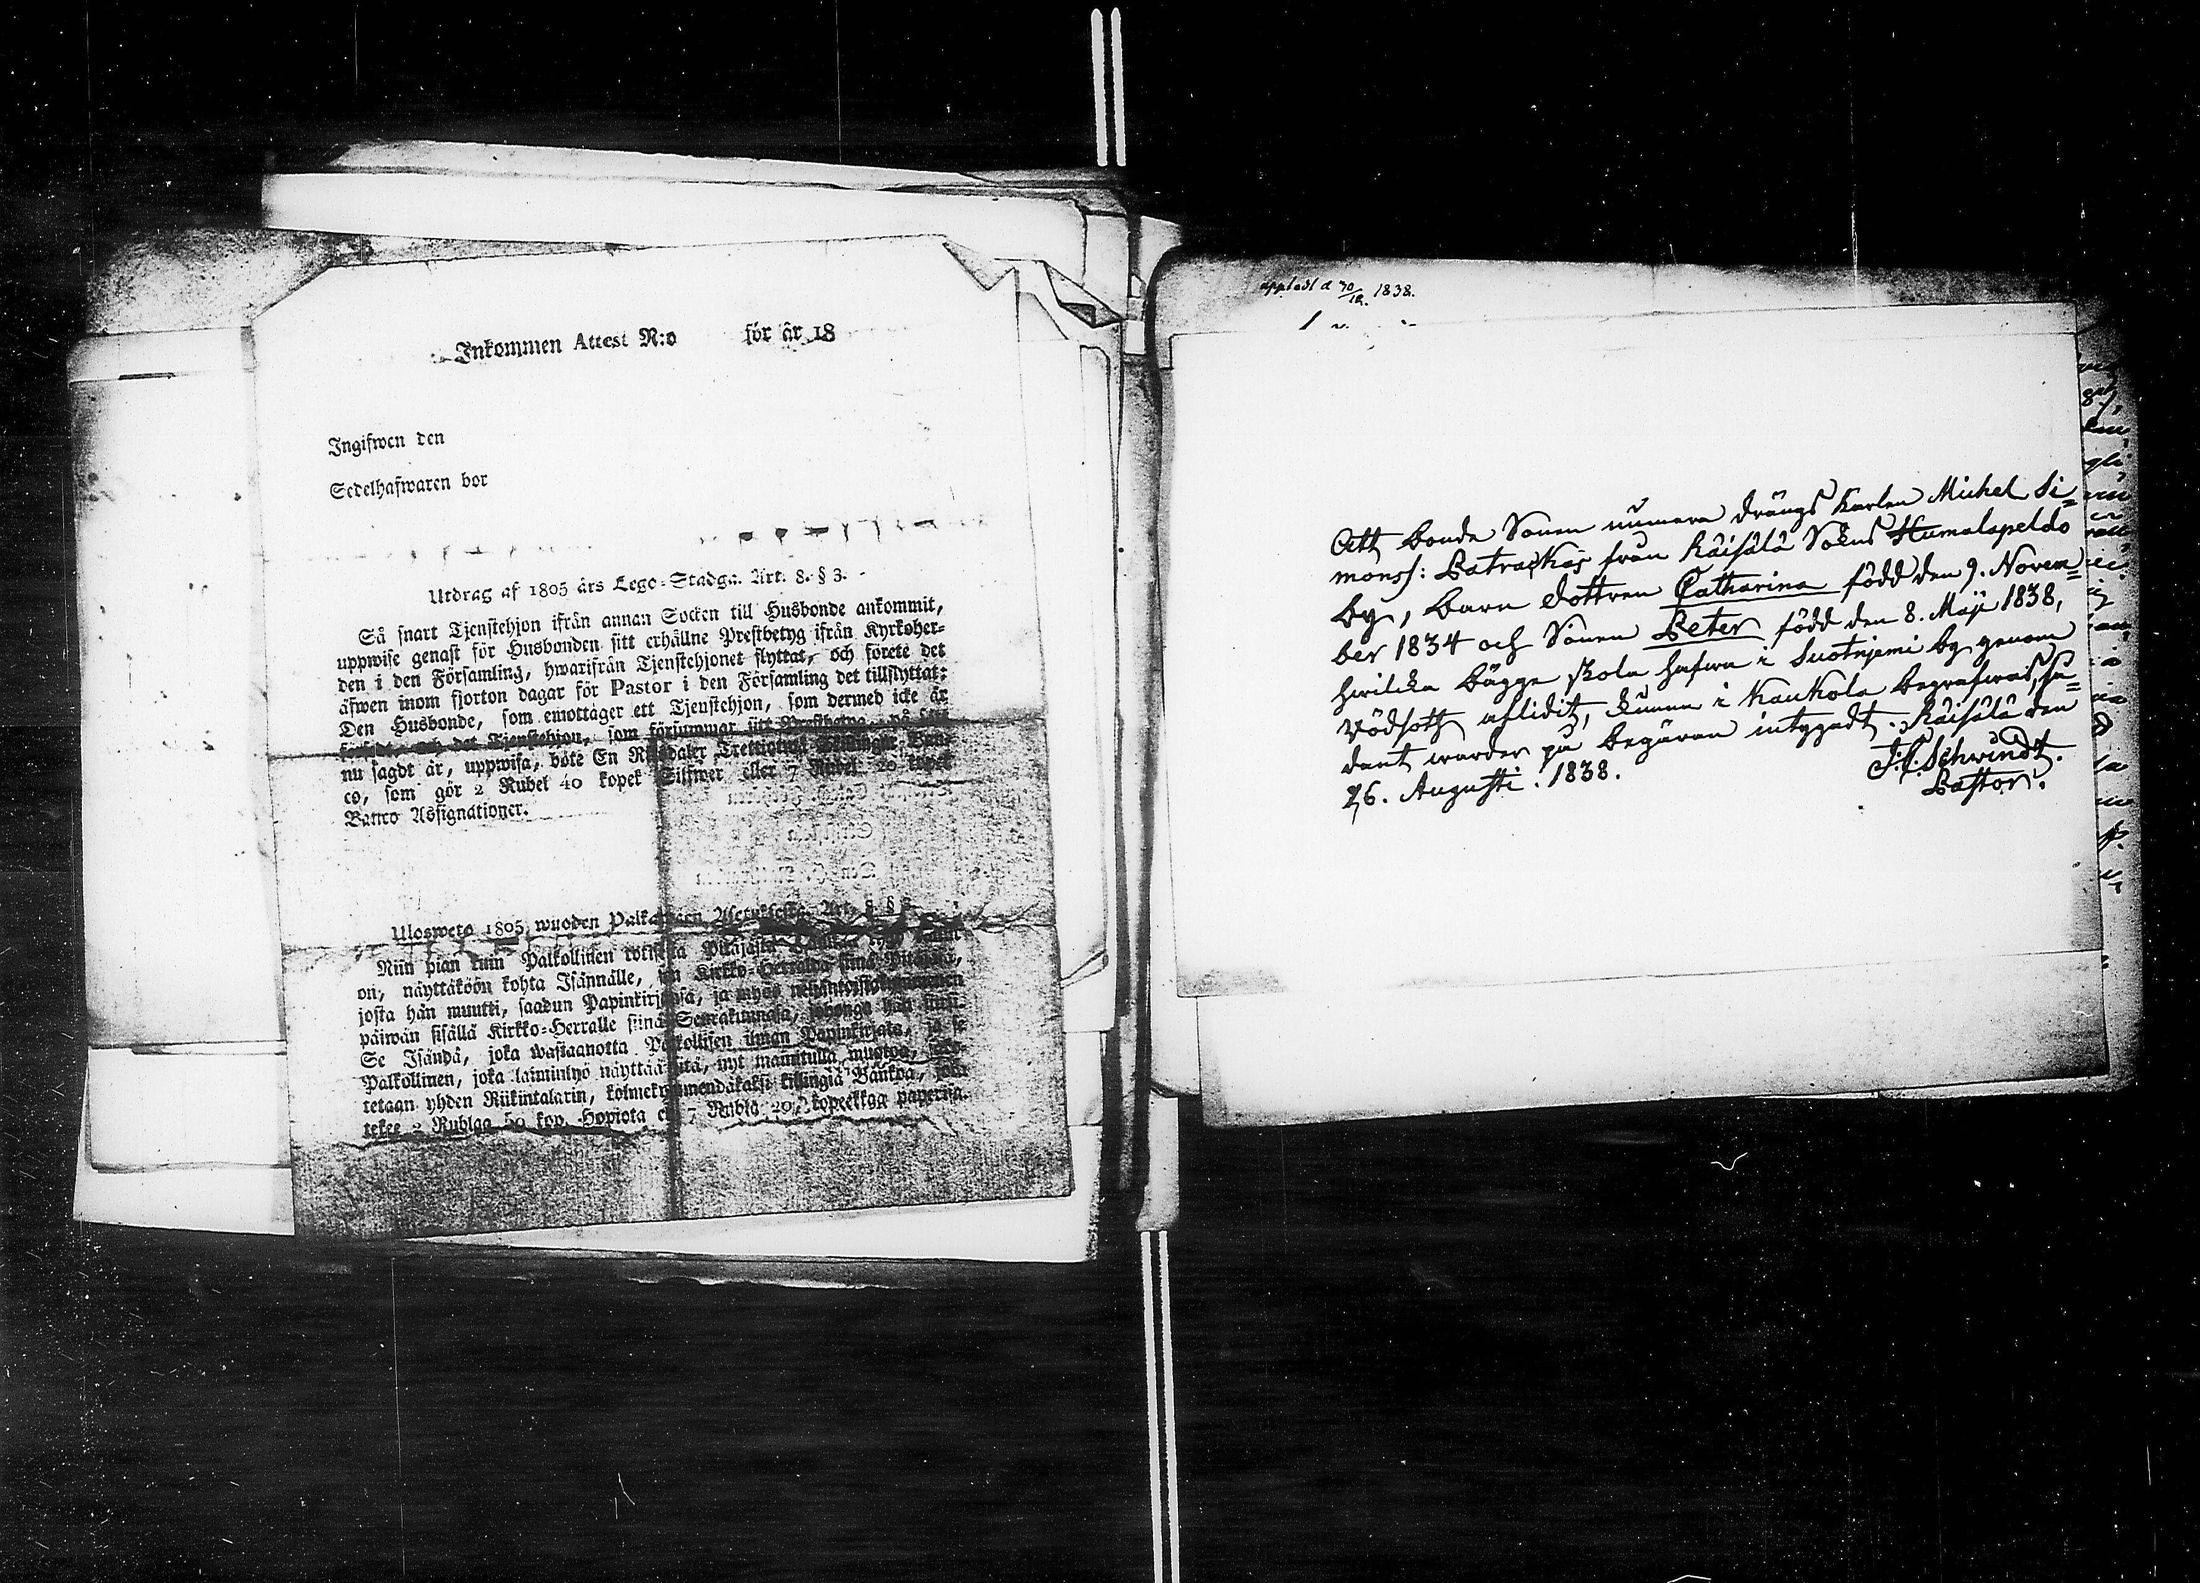 Inkommen Attest N:o för år 18
Ingifwen den
Sedelhafwaren bor
Utdrag af 1805 års Lego-Stadga. Art. 8. § 3.
Så snart Tjenstehjon ifrån annan Socken till Husbonde ankommit,
uppwise genast för Husbonden sitt erhållne Prestbetyg ifrån Kyrkoher-
den i den Församling, hwarifrån Tjenstehjonet flyttat, och förete det
äfwen inom fjorton dagar för Pastor i den Församling det tillflyttat:
Den Husbonde, som emottager ett Tjenstehjon, som dermed icke är
försedt, och det Tjenstehjon, som försummar sitt Prestbetyg, på sätt
nu sagdt är, uppwisa, böte En Riksdaler Trettiotwå Skillingar Ban-
co, som gör 2 Rubel 40 kopek Silfwer eller 7 Rubel 20 kopek
Banco Assignationer.
Ulosweto 1805 wuoden Palkollisten Asetuksesta. Art. 8 § 3.
Niin pian kuin Palkollinen toisesta Pitäjästä
on, näyttäköön kohta Isännälle, sen Kirkko-Herralda siinä Pitäjäsä,
josta hän muutti, saadun Papinkirjansa, ja myös neljäntoistakymmenen
päiwän sisällä Kirkko-Herralle siinä Seurakunnasa, johonga hän
Se Isändä, joka wastaanotta Palkollisen ilman Papinkirjata, ja se
Palkollinen, joka laiminlyö näyttää sitä, nyt mainitulla muotoa,
tetaan yhden Riikintalarin, kolmekymmendäkaksi killingiä Bankoa, joka
tekee 2 Rublaa 40 kop. Hopiota eli 7 Rubla 20 kopeekkaa paperia.
uppläst d 30/12. 1838.
Att bonde Sonen numera drängs Karlen Michel Si=
monss: Patrackas från Räisälä Sokns Humalapeldo
by, barn dottren Catharina född den 9. Novem=
ber 1834 och Sonen Peter född den 8. Maji 1838,
hwilcka bägge skola hafwa i Suotnjemi by genom
Rödsoth aflidit, kunna i Kaukola begrafwas, så=
dant warder på begäran intygadt. Räisälä den
26. Augusti. 1838.
Schwindt.
Pastor.